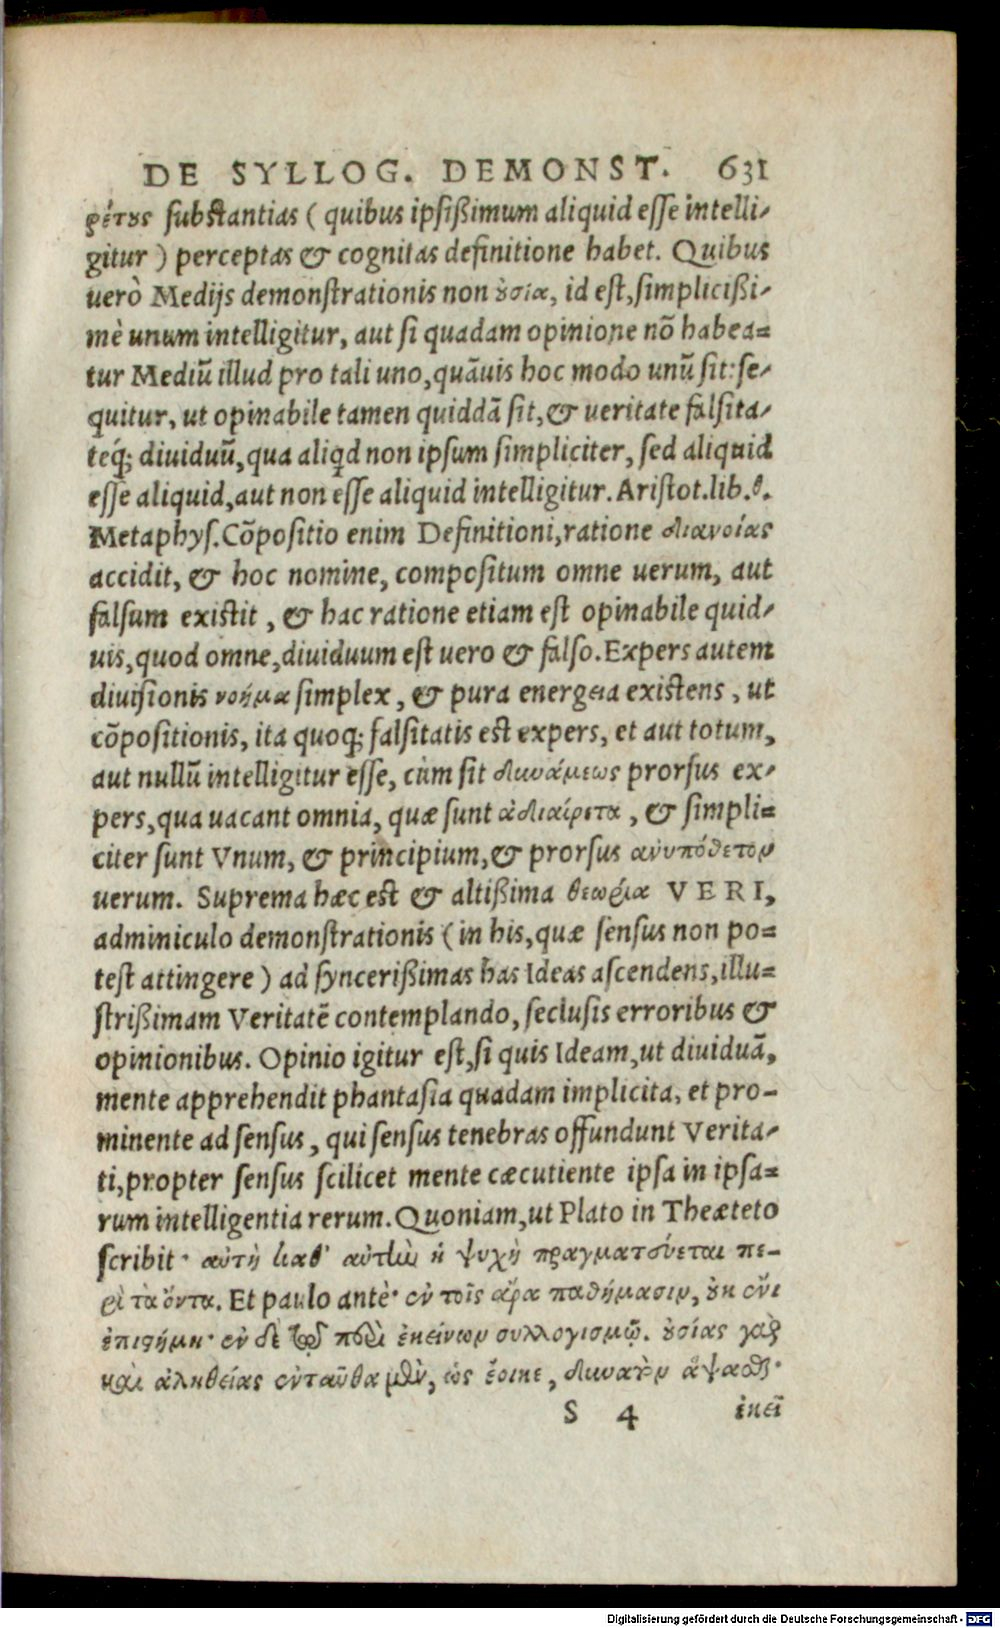 DE SYLLOG. DEMONST. 631
ρέτους substantias ( quibus ipsißimum aliquid esse intelli-
gitur ) perceptas & cognitas definitione habet. Quibus
uerò Medijs demonstrationis non οὐσία, id est, simplicißi-
mè unum intelligitur, aut si quadam opinione nō habea=
tur Mediū illud pro tali uno, quāuis hoc modo unū sit: se-
quitur, ut opinabile tamen quiddā sit, & ueritate falsita-
teq́; diuiduū, qua aliqd non ipsum simpliciter, sed aliquid
esse aliquid, aut non esse aliquid intelligitur. Aristot. lib. θ.
Metaphys. Cōpositio enim Definitioni, ratione διανοίας
accidit, & hoc nomine, compositum omne uerum, aut
falsum existit , & hac ratione etiam est opinabile quid-
uis, quod omne, diuiduum est uero & falso. Expers autem
diuisionis νοήμα simplex , & pura energεια existens , ut
cōpositionis, ita quoq; falsitatis est expers, et aut totum,
aut nullū intelligitur esse, cùm sit δυνάμεως prorsus ex-
pers, qua uacant omnia, quæ sunt ἀδιαίρετα , & simpli=
citer sunt Vnum, & principium, & prorsus ἀνυπόθετον
uerum. Suprema hæc est & altißima θεωρία VERI,
adminiculo demonstrationis ( in his, quæ sensus non po=
test attingere ) ad syncerißimas has Ideas ascendens, illu=
strißimam Veritatē contemplando, seclusis erroribus &
opinionibus. Opinio igitur est, si quis Ideam, ut diuiduā,
mente apprehendit phantasia quadam implicita, et pro-
minente ad sensus , qui sensus tenebras offundunt Verita-
ti, propter sensus scilicet mente cæcutiente ipsa in ipsa=
rum intelligentia rerum. Quoniam, ut Plato in Theæteto
scribit· αὐτὴ καθ' αὑτὴν ἡ ψυχὴ πραγματεύεται πε-
ρὶ τὰ ὄντα. Et paulo antè· ἐν τοῖς ἄρα παθήμασιν, οὐκ ἔνι
ἐπιστήμη· ἐν δὲ τῷ περὶ ἐκείνων συλλογισμῷ. οὐσίας γὰρ
καὶ ἀληθείας ἐνταῦθα μὲν, ὡς ἔοικε, δυνατὸν ἅψασθ·
S 4 ἐκεῖ
Digitalisierung gefördert durch die Deutsche Forschungsgemeinschaft - DFG